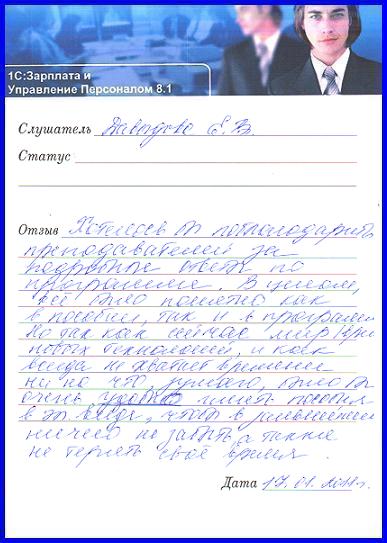 1С:Зарплата и
Управление Персоналом 8.1
Слушатель Давыдова Е. В.
Статус
Отзыв Хотелось бы поблагодарить
преподавателей за
подробные ответы по
программе. В целом,
всё было понятно как
в пособии, так и в программе
Но так как сейчас мир
новых технологий, и как
всегда не хватает времени
ни на что, думаю, было бы
очень удобно иметь пособия
в эл. виде, чтобы в дальнейшем
ничего не забыть, а также
не терять своё время.
Дата 17.01.2011г.